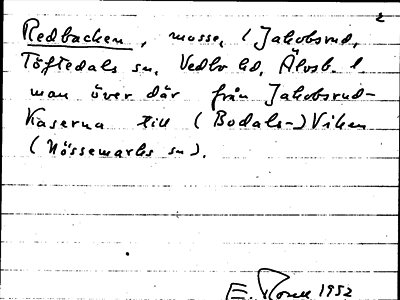 2
Redbacken, mosse, (Jakobsrud,
Töftedals sn, Vedbo hd, Älvsb. l.
man över där från Jakobsrud-
Kaserna till (Bodals-)Viken
(Nössemarks sn).
E. 1952